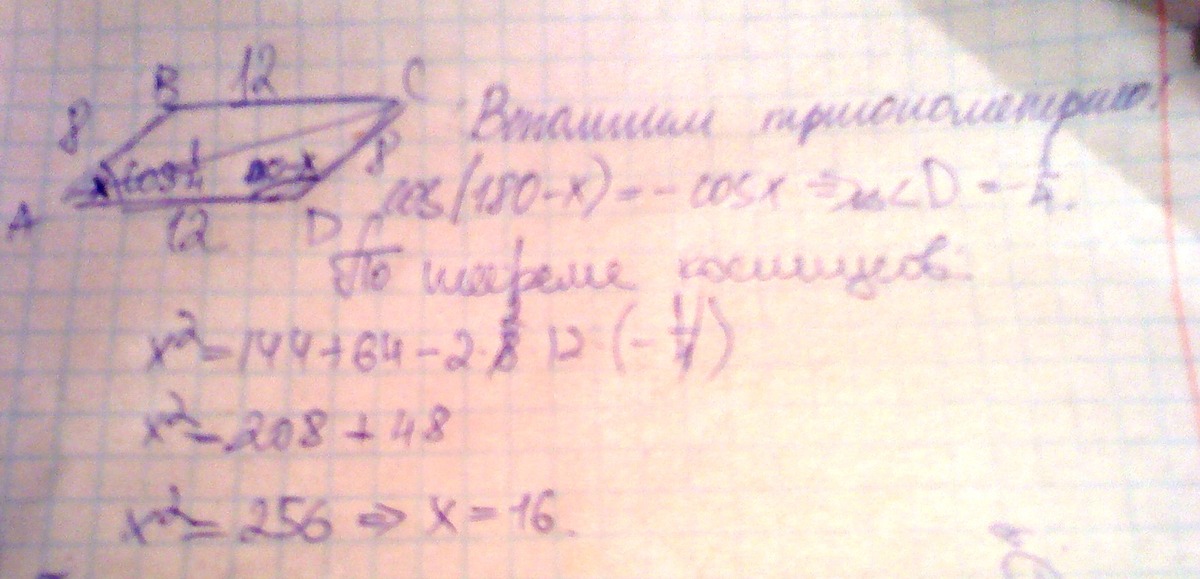 B 12 C
8
x cos 1/4 180-x 8
A 12 D
Вспомним тригонометрию!
cos(180-x) = -cosx ⇒ cos<D = -1/4.
По теореме косинусов:
x²=144+64-2·8·12·(-1/4)
x²=208+48
x²=256 ⇒ x=16.